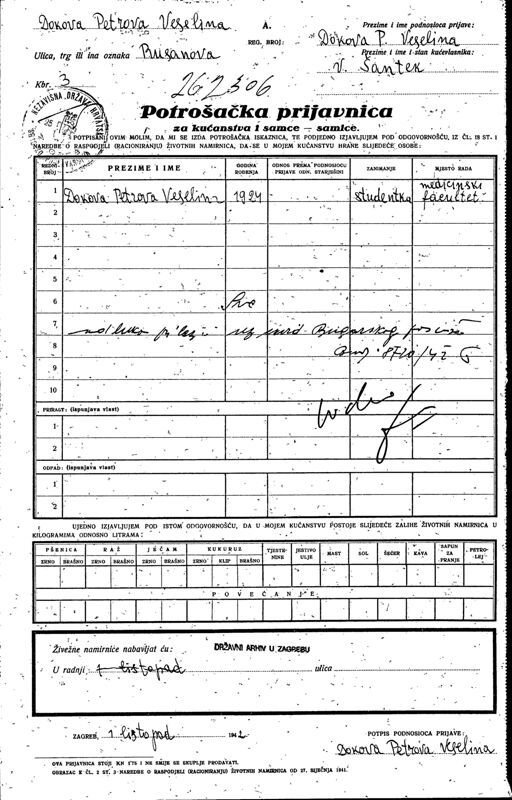 Dokova Petrova Veselina
A.
REG. BROJ:
Prezime i ime podnosioca prijave:
Dokova P. Veselina
Ulica, trg ili ina oznaka Rusanova
Prezime i ime i stan kućevlasnika:
V. Šantek
Kbr. 3
262306
NEZAVISNA DRŽAVA HRVATSKA
Potrošačka prijavnica
za kućanstva i samce – samice.
POTPISANI OVIM MOLIM, DA MI SE IZDA POTROŠAČKA ISKAZNICA, TE PODJEDNO IZJAVLJUJEM POD ODGOVORNOŠĆU, IZ ČL. 18 ST. 1
NAREDBE O RASPODJELI (RACIONIRANJU) ŽIVOTNIH NAMIRNICA, DA SE U MOJEM KUĆANSTVU HRANE SLIJEDEĆE OSOBE:
REDNI BROJ
PREZIME I IME
GODINA ROĐENJA
ODNOS PREMA PODNOSIOCU PRIJAVE ODN. STARJEŠINI
ZANIMANJE
MJESTO RADA
1 Dokova Petrova Veselina 1924 studentka medicinski fakultet
2
3
4
5
6
7
8
9
10
PRIRAST: (ispunjava vlast)
1
2
ODPAD: (ispunjava vlast)
1
2
UJEDNO IZJAVLJUJEM POD ISTOM ODGOVORNOŠĆU, DA U MOJEM KUĆANSTVU POSTOJE SLIJEDEĆE ZALIHE ŽIVOTNIH NAMIRNICA U
KILOGRAMIMA ODNOSNO LITRAMA:
PŠENICA RAŽ JEČAM KUKURUZ TJESTENINE JESTIVO ULJE MAST SOL ŠEĆER KAVA SAPUN ZA PRANJE PETROLEJ
ZRNO BRAŠNO ZRNO BRAŠNO ZRNO BRAŠNO ZRNO KLIP BRAŠNO
POVEĆANJE
Živežne namirnice nabavljat ću:
DRŽAVNI ARHIV U ZAGREBU
U radnji 1 listopad ulica
ZAGREB, 1 listopad 1942
POTPIS PODNOSIOCA PRIJAVE:
Dokova Petrova Veselina
OVA PRIJAVNICA STOJI KN 1.75 I NE SMIJE SE SKUPLJE PRODAVATI.
OBRAZAC K ČL. 2 ST. 3 NAREDBE O RASPODJELI (RACIONIRANJU) ŽIVOTNIH NAMIRNICA OD 27. SIJEČNJA 1941.